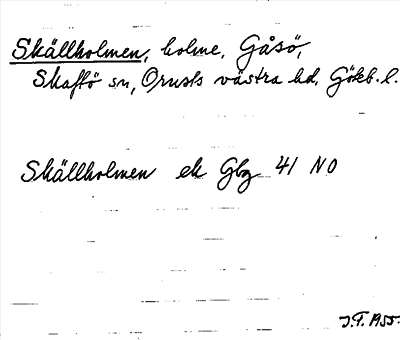 Skällholmen, holme, Gåsö,
Skaftö sn, Orusts västra hd. Göteb. l.
Skällholmen ek Gbg 41 NO
J.F. 1955.